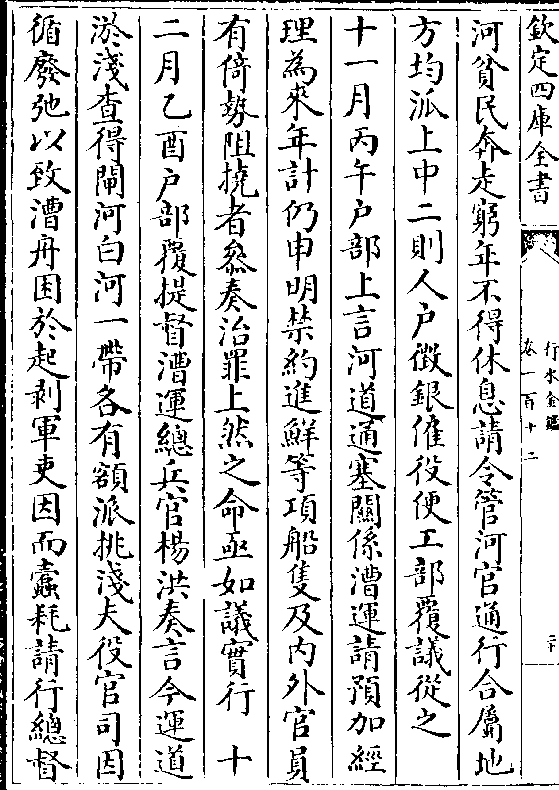 欽定四庫全書
行水金鑑
卷一百十二
二十
河貧民奔走窮年不得休息請令管河官通行合屬地
方均派上中二則人戶徴銀僱役便工部覆議從之
十一月丙午戶部上言河道通塞關係漕運請預加經
理為來年計仍申明禁約進鮮等項船隻及内外官員
有倚勢阻撓者叅奏治罪上然之命亟如議實行　十
二月乙酉戶部覆提督漕運總兵官楊洪奏言今運道
淤淺查得閘河白河一帶各有額派挑淺夫役官司因
循廢弛以致漕舟困於起剥軍吏因而蠧耗請行總督